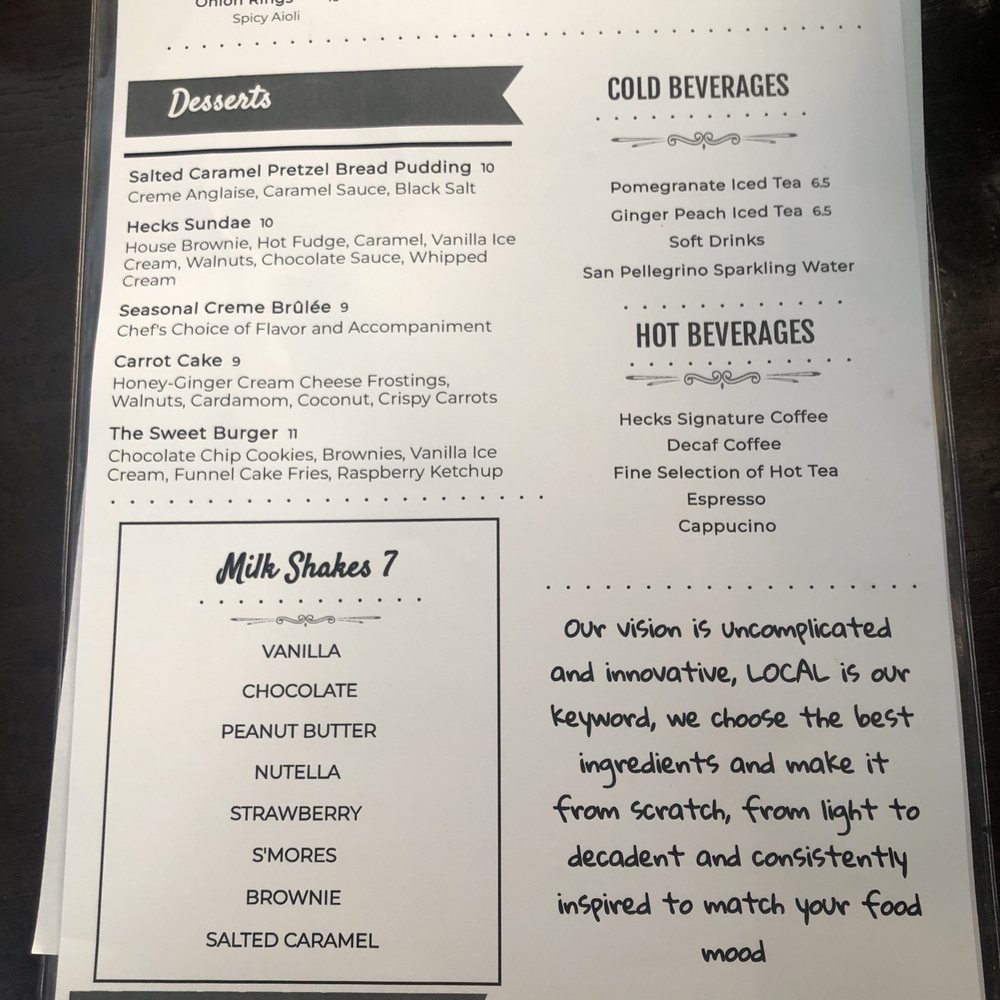 Onion Rings
Spicy Aioli
Desserts
Salted Caramel Pretzel Bread Pudding 10
Creme Anglaise, Caramel Sauce, Black Salt
Hecks Sundae 10
House Brownie, Hot Fudge, Caramel, Vanilla Ice
Cream, Walnuts, Chocolate Sauce, Whipped
Cream
Seasonal Creme Brûlée 9
Chef's Choice of Flavor and Accompaniment
Carrot Cake 9
Honey-Ginger Cream Cheese Frostings,
Walnuts, Cardamom, Coconut, Crispy Carrots
The Sweet Burger 11
Chocolate Chip Cookies, Brownies, Vanilla Ice
Cream, Funnel Cake Fries, Raspberry Ketchup
Milk Shakes 7
VANILLA
CHOCOLATE
PEANUT BUTTER
NUTELLA
STRAWBERRY
S'MORES
BROWNIE
SALTED CARAMEL
COLD BEVERAGES
Pomegranate Iced Tea 6.5
Ginger Peach Iced Tea 6.5
Soft Drinks
San Pellegrino Sparkling Water
HOT BEVERAGES
Hecks Signature Coffee
Decaf Coffee
Fine Selection of Hot Tea
Espresso
Cappucino
Our vision is uncomplicated
and innovative, LOCAL is our
keyword, we choose the best
ingredients and make it
from scratch, from light to
decadent and consistently
inspired to match your food
mood